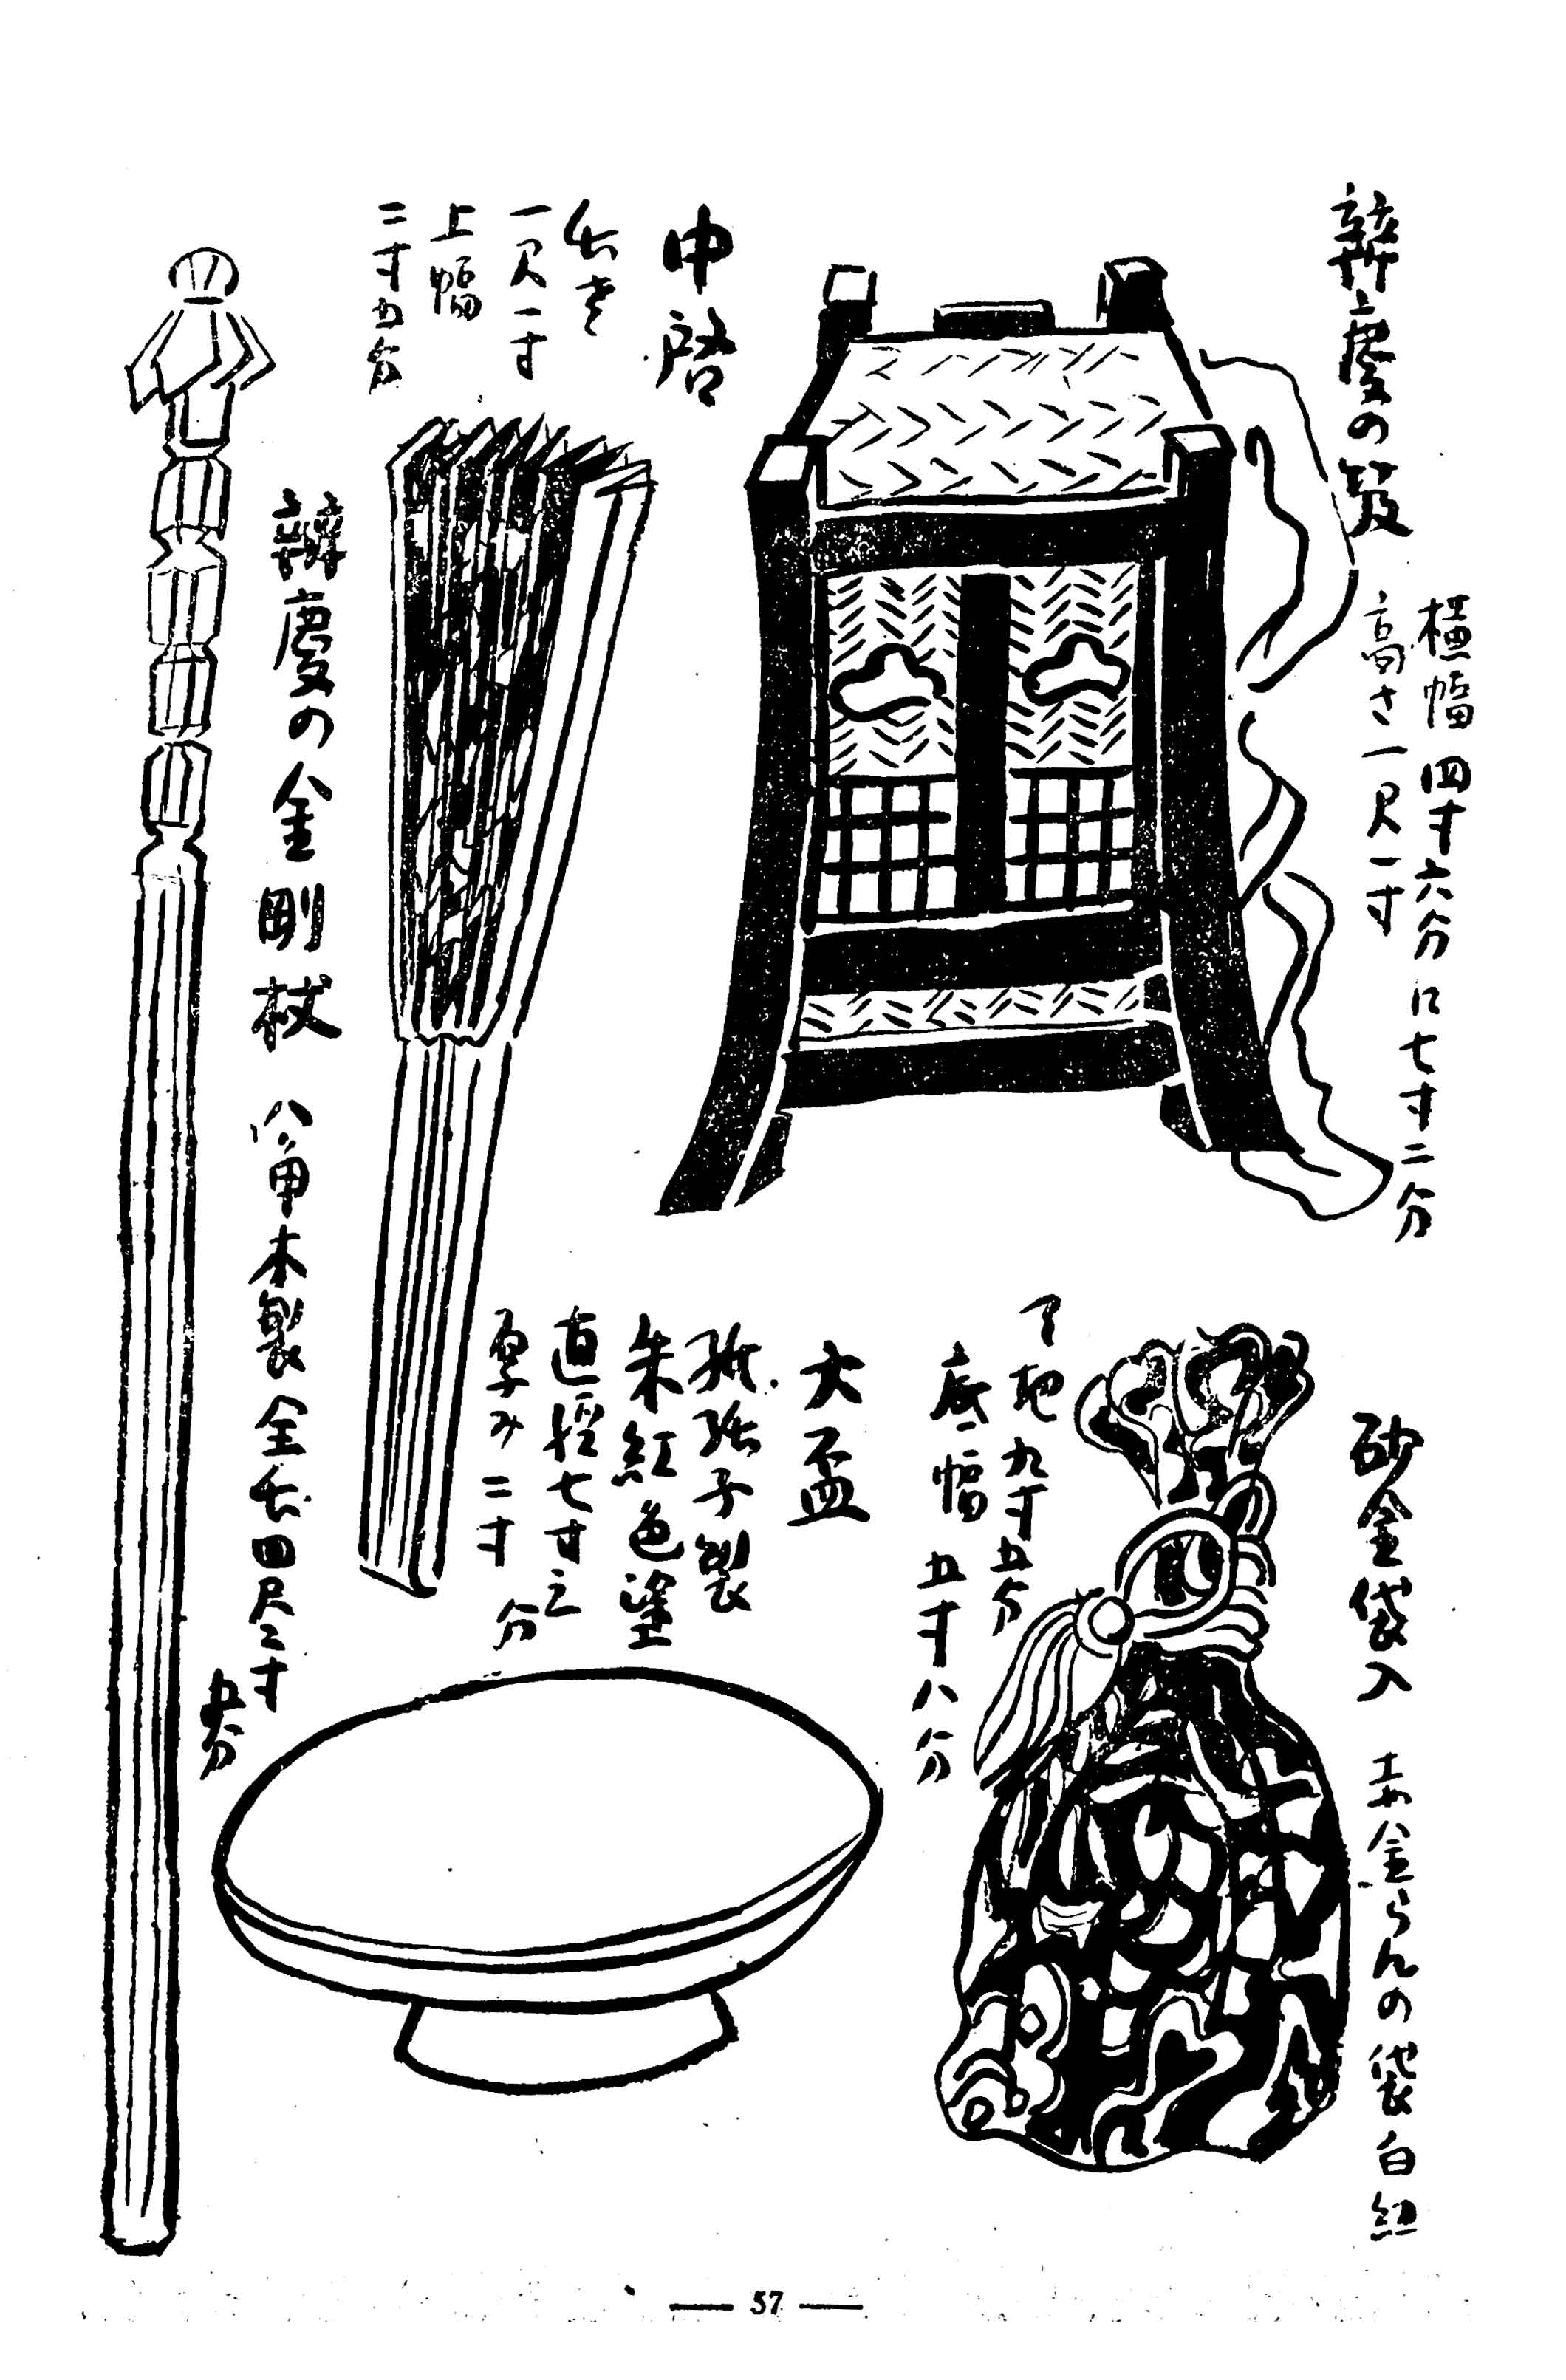 辨慶の笈
横幅四寸六分に七寸二分
高さ一尺一寸
中啓
長さ
一尺一寸
上幅
三寸五分
辨慶の金剛杖 八角木製全長四尺二寸
五分
砂金袋入 赤金らんの袋白紅
丈地九寸五分
底幅 五寸八分
大盃
紙張子製
朱紅色塗
直徑七寸三分
厚み二寸
— 57 —